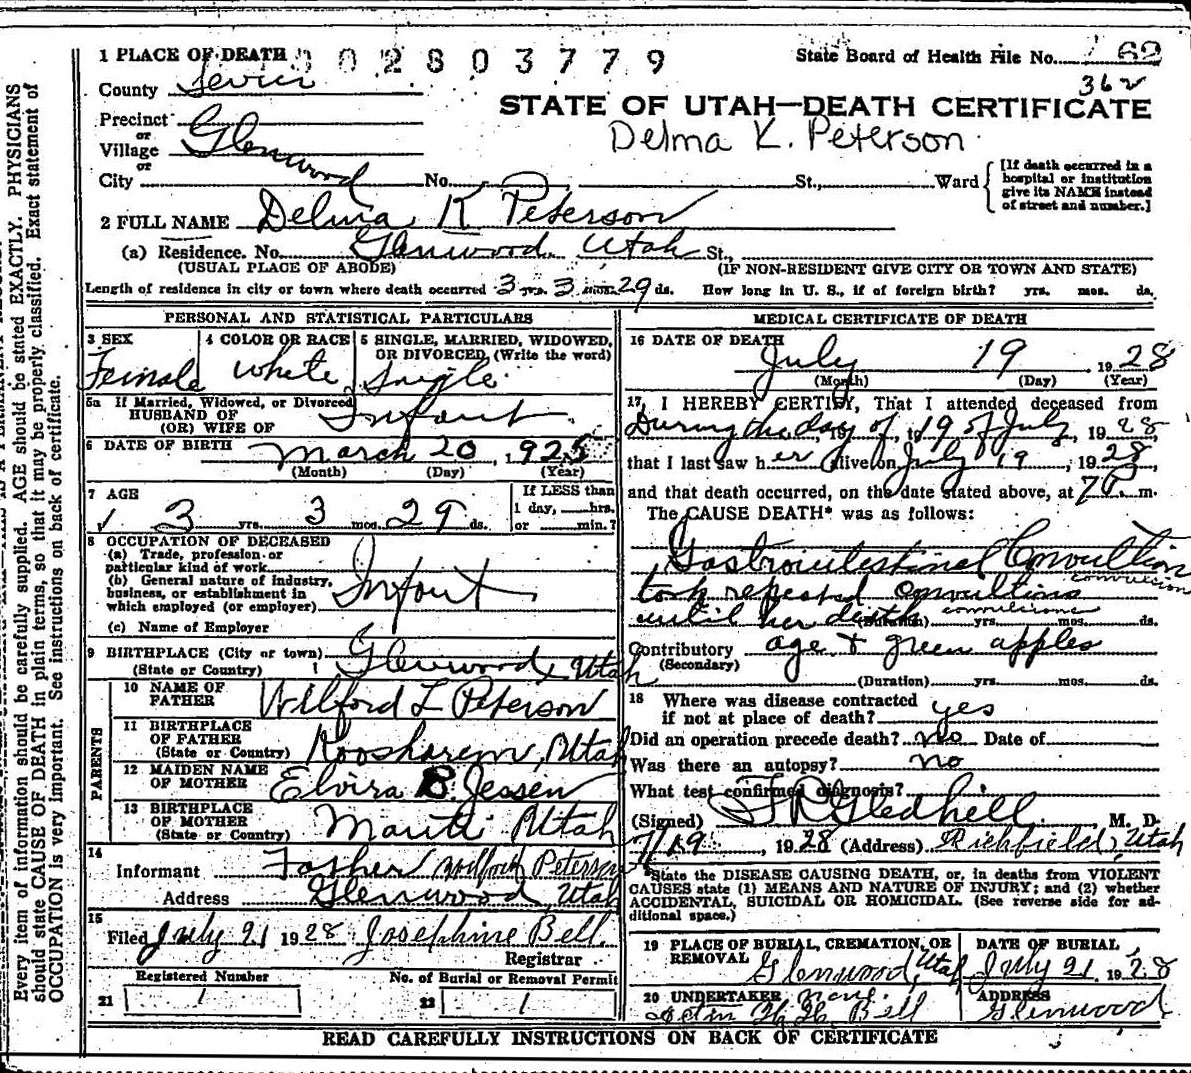 1 PLACE OF DEATH
02803779
State Board of Health File No. 62
362
County Sevier
STATE OF UTAH—DEATH CERTIFICATE
Delma K. Peterson
Precinct
or
Village Glenwood
or
City No. St., Ward
[If death occurred in a hospital or institution give its NAME instead of street and number.]
2 FULL NAME Delma K Peterson
(a) Residence. No. Glenwood Utah St.,
(USUAL PLACE OF ABODE) (IF NON-RESIDENT GIVE CITY OR TOWN AND STATE)
Length of residence in city or town where death occurred 3 yrs. 3 mos. 29 ds. How long in U. S., if of foreign birth? yrs. mos. ds.
PERSONAL AND STATISTICAL PARTICULARS
3 SEX Female
4 COLOR OR RACE White
5 SINGLE, MARRIED, WIDOWED, OR DIVORCED, (Write the word) Single
5a If Married, Widowed, or Divorced
HUSBAND OF
(OR) WIFE OF Infant
6 DATE OF BIRTH March 20, 1925
(Month) (Day) (Year)
7 AGE
3 yrs. 3 mos. 29 ds.
If LESS than
1 day, hrs.
or min.?
8 OCCUPATION OF DECEASED
(a) Trade, profession or
particular kind of work
(b) General nature of industry,
business, or establishment in
which employed (or employer) Infant
(c) Name of Employer
9 BIRTHPLACE (City or town)
(State or Country) Glenwood, Utah
PARENTS
10 NAME OF FATHER Wilford L Peterson
11 BIRTHPLACE OF FATHER (State or Country) Koosharem, Utah
12 MAIDEN NAME OF MOTHER Elvira B. Jessen
13 BIRTHPLACE OF MOTHER (State or Country) Manti Utah
14 Informant Father Wilford Peterson
Address Glenwood, Utah
15 Filed July 21 1928 Josephine Bell
Registrar
Registered Number No. of Burial or Removal Permit
21 1 22 1
MEDICAL CERTIFICATE OF DEATH
16 DATE OF DEATH
July 19, 1928
(Month) (Day) (Year)
17, I HEREBY CERTIFY, That I attended deceased from
During the day of, 19 of July, 1928
that I last saw her alive on July 19, 1928
and that death occurred, on the date stated above, at 7 P. m.
The CAUSE DEATH* was as follows:
Gastrointestinal Convultion
took repeated convultions convulsion
until her death convulsions
(Duration) yrs. mos. ds.
Contributory age & green apples
(Secondary)
(Duration) yrs. mos. ds.
18 Where was disease contracted
if not at place of death? yes
Did an operation precede death? no Date of
Was there an autopsy? no
What test confirmed diagnosis?
(Signed) Gledhill M. D.
7/19, 1928 (Address) Richfield, Utah
*State the DISEASE CAUSING DEATH, or, in deaths from VIOLENT
CAUSES state (1) MEANS AND NATURE OF INJURY; and (2) whether
ACCIDENTAL, SUICIDAL OR HOMICIDAL. (See reverse side for additional space.)
19 PLACE OF BURIAL, CREMATION, OR REMOVAL Glenwood, Utah
DATE OF BURIAL July 21, 1928
20 UNDERTAKER none.
Bell
ADDRESS Glenwood
READ CAREFULLY INSTRUCTIONS ON BACK OF CERTIFICATE
Every item of information should be carefully supplied. AGE should be stated EXACTLY. PHYSICIANS
should state CAUSE OF DEATH in plain terms, so that it may be properly classified. Exact statement of
OCCUPATION is very important. See instructions on back of certificate.